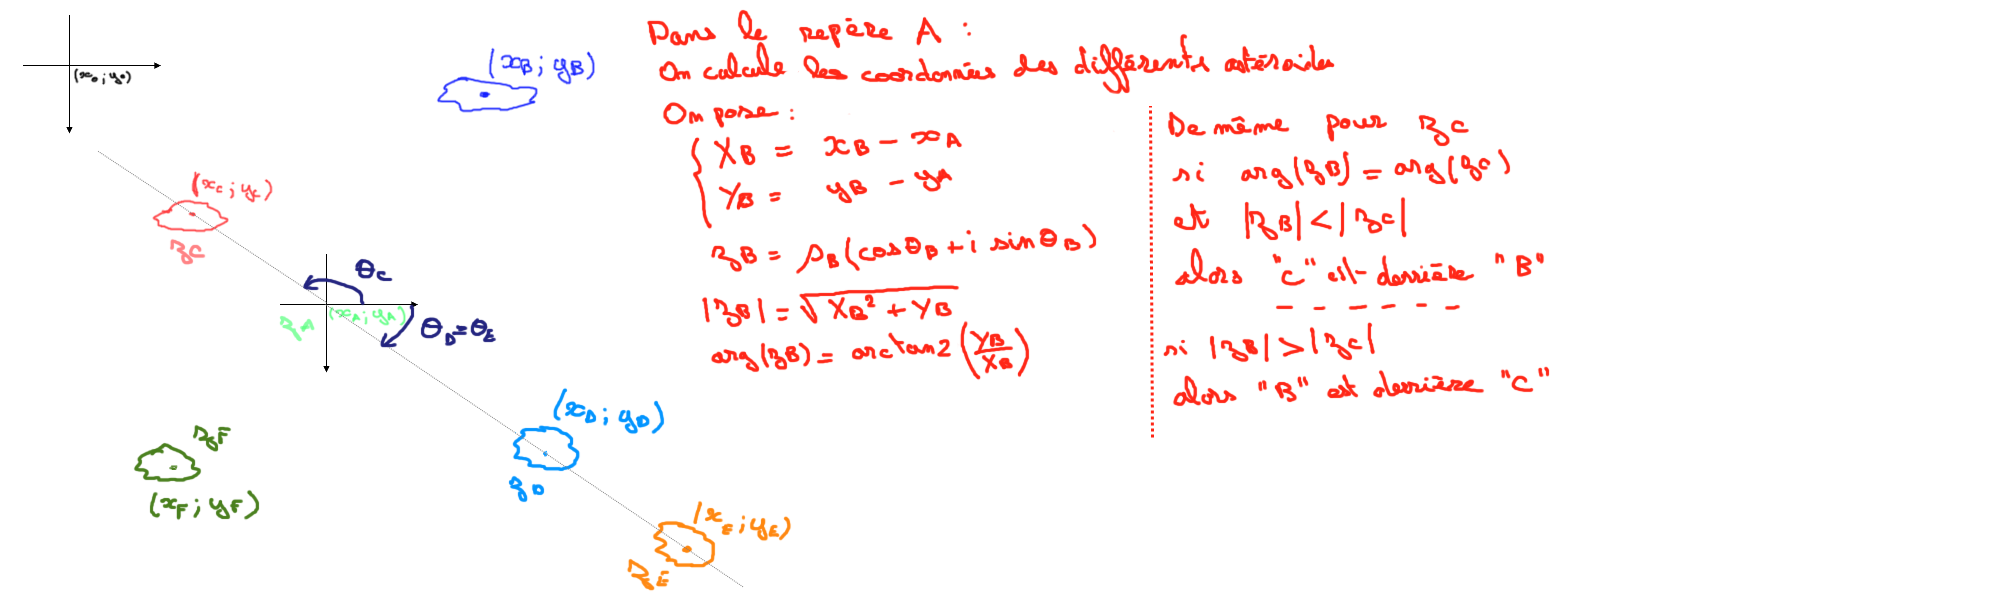 (x₀ ; y₀)
(xB ; yB)
(xC ; yC)
zC
θC
zA
(xA ; yA)
θD=θE
(xD ; yD)
zD
zF
(xF ; yF)
(xE ; yE)
zE
Dans le repère A :
On calcule les coordonnées des différents astéroïdes
On pose :
XB = xB - xA
YB = yB - yA
zB = ρB (cosθB + i sinθB)
|zB| = √(XB² + YB)
arg(zB) = arctan2 (YB/XB)
De même pour zC
si arg(zB) = arg(zC)
et |zB| < |zC|
alors "C" est derrière "B"
- - - - - -
si |zB| > |zC|
alors "B" est derrière "C"